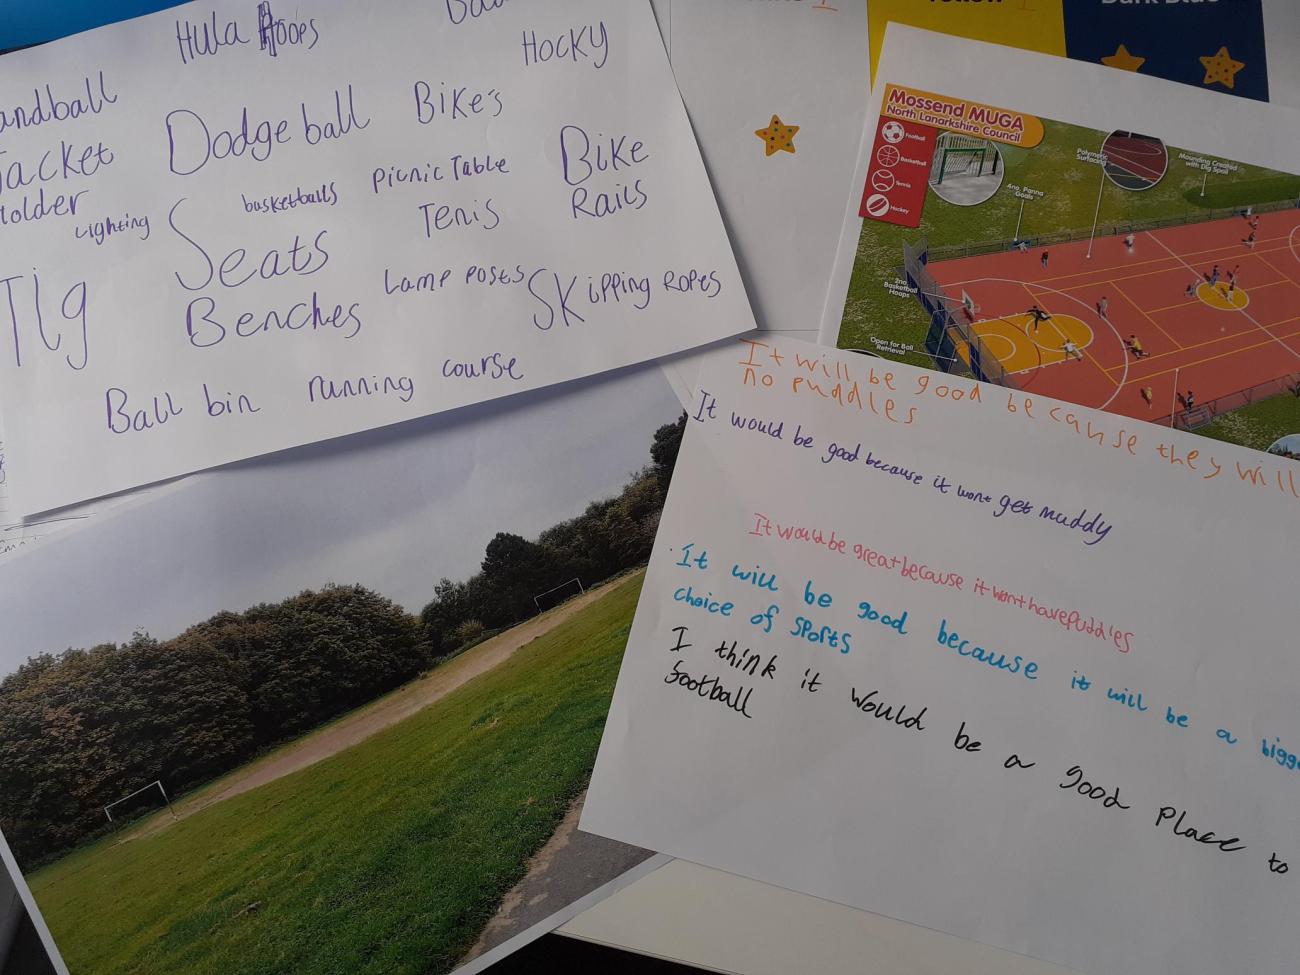 Hula Hoops
Hocky
Jacket
Dodgeball
Bike's
Bike
Rails
Lighting
basketballs
Picnic Table
Seats
Tenis
Tig
Benches
Lamp Posts
Skipping Ropes
Ball bin
running course
Mossend MUGA
North Lanarkshire Council
Football
Basketball
Tennis
Hockey
4no. Panna
Goals
Polymeric
Surfacing
Mounding Created
with Dig Spoil
2no.
Basketball
Hoops
Open for Ball
Retrieval
It will be good because they will
no puddles
It would be good because it wont get muddy
It would be great because it wont have Puddles
It will be good because it will be a
choice of sports
I think it would be a good Place to
football